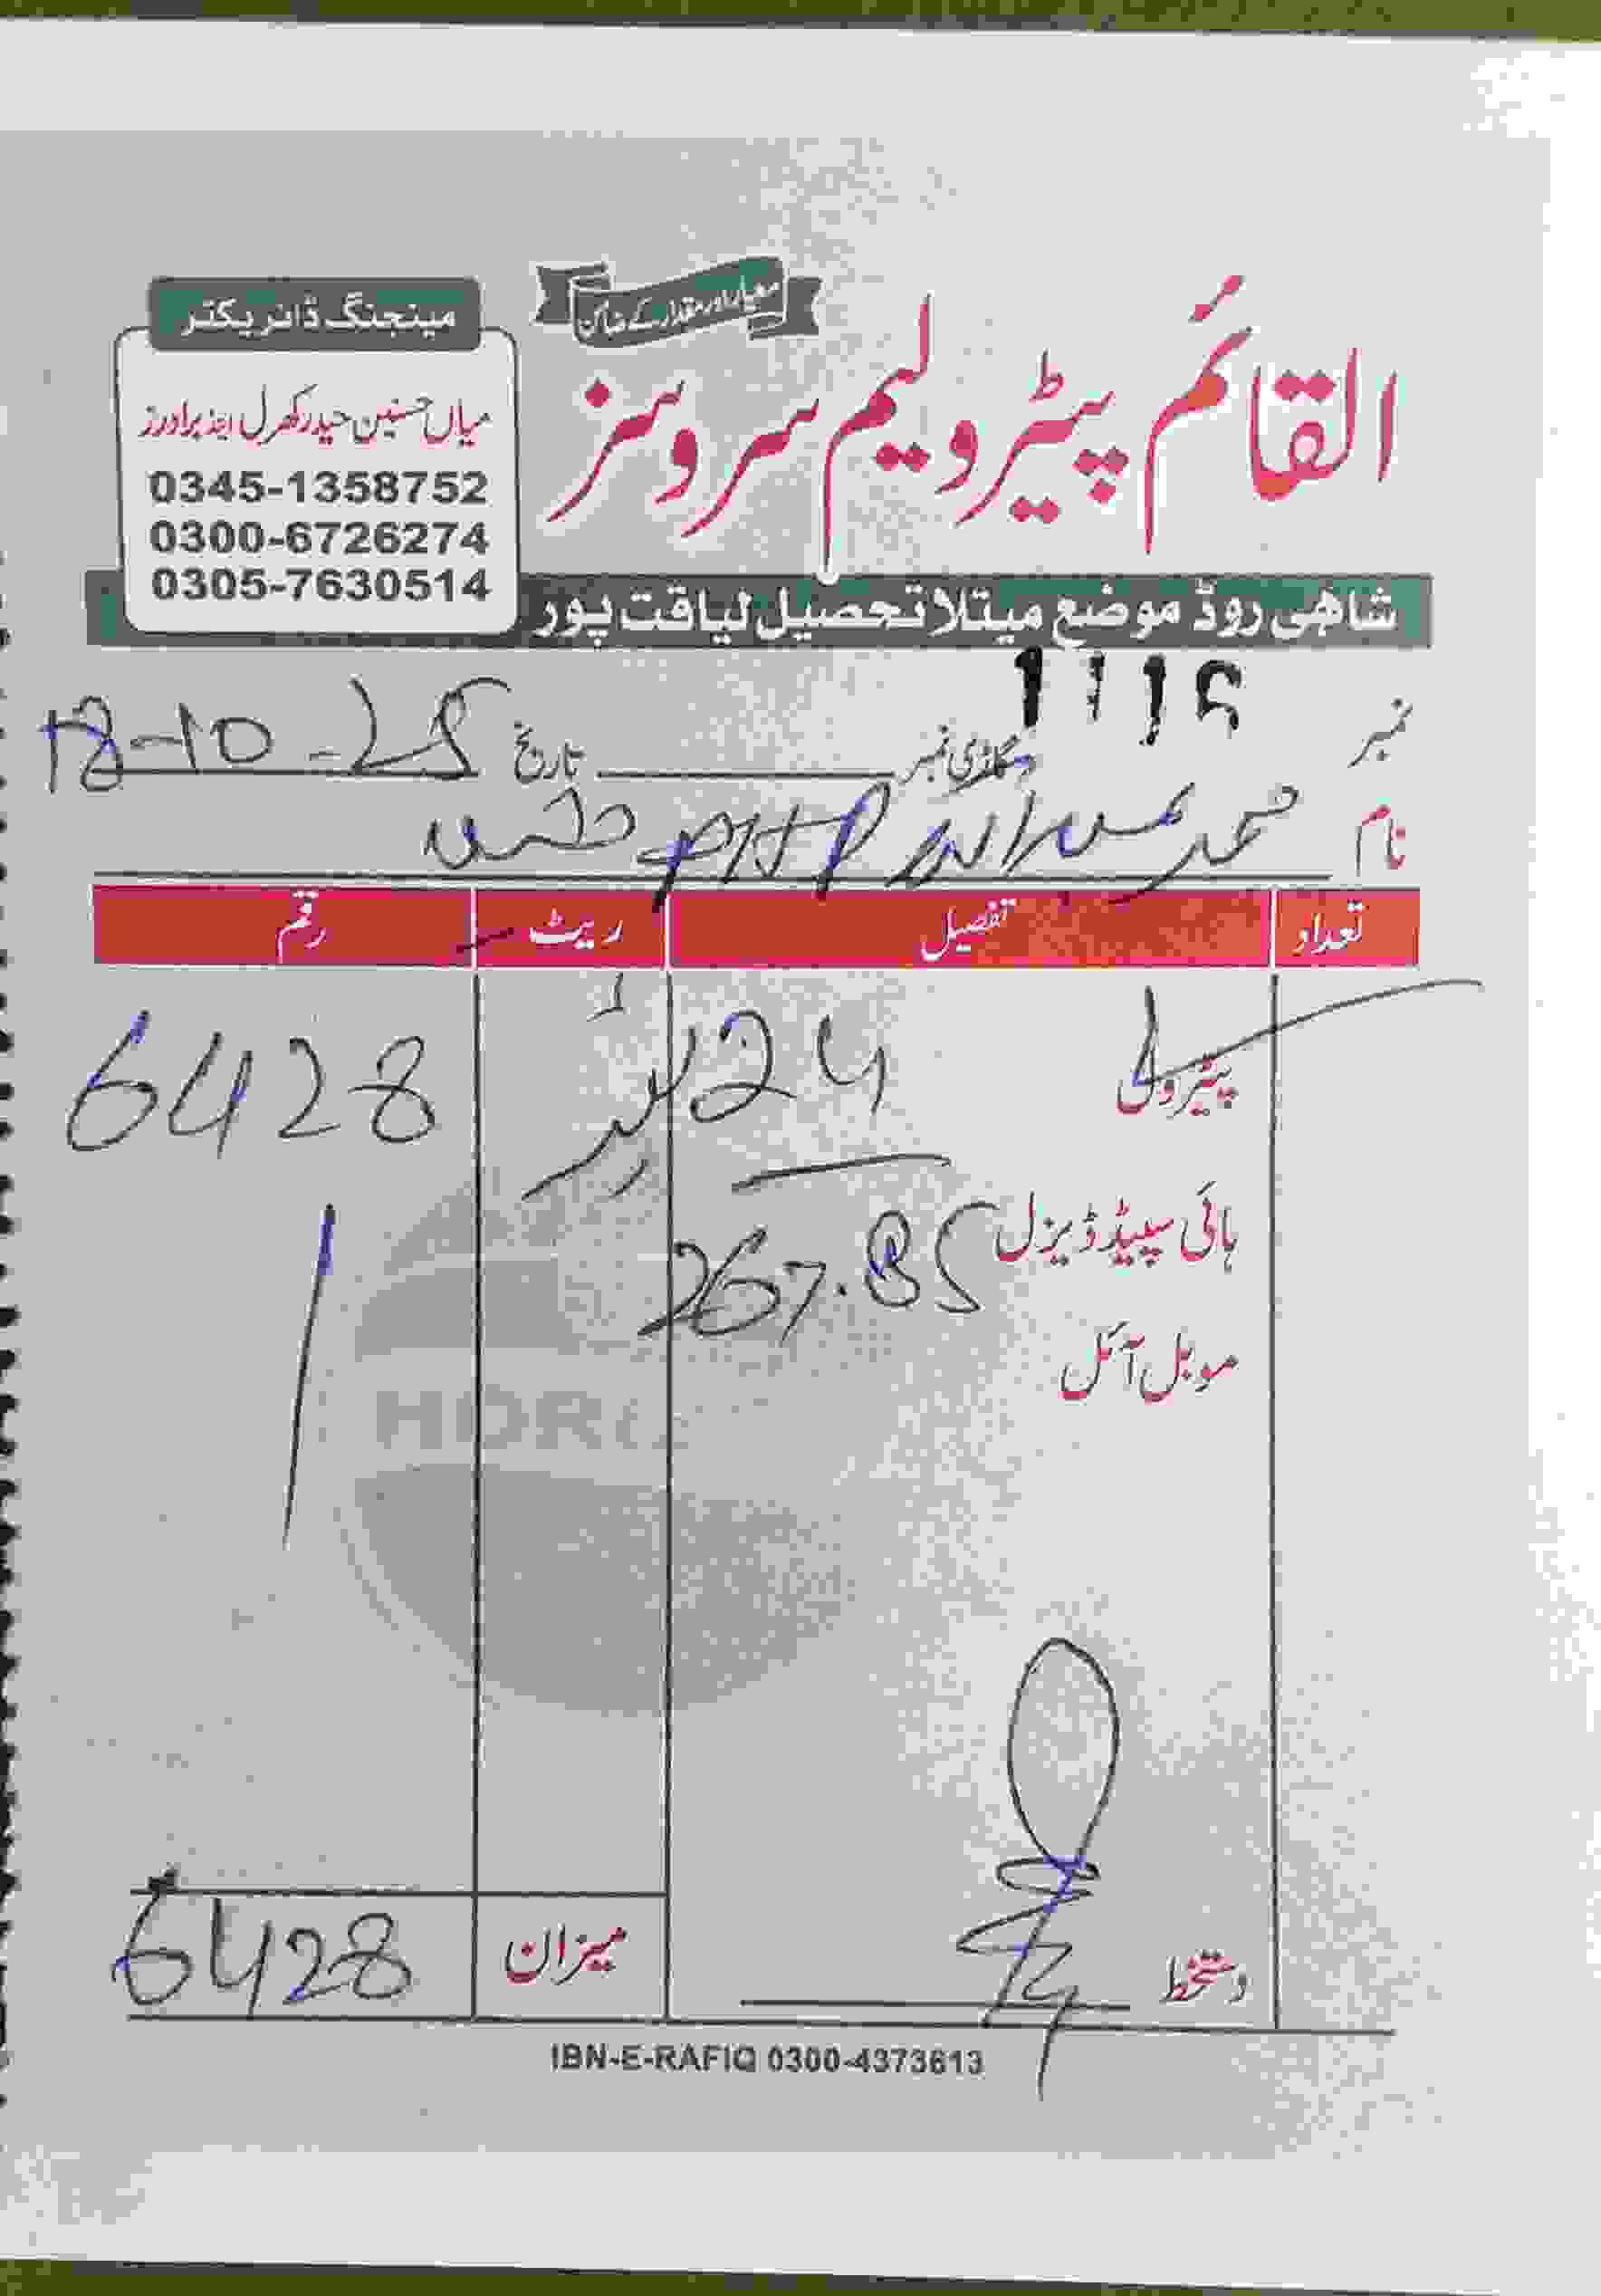 معیار اور مقدار کے ضامن
القائم پیٹرولیم سروسز
مینجنگ ڈائریکٹر
میاں حسنین حیدر کھرل اینڈ برادرز
0345-1358752
0300-6726274
0305-7630514
شاھی روڈ موضع میتلا تحصیل لیاقت پور
نمبر 1115 گاڑی نمبر تاریخ 18-10-25
نام محمد عبداللہ PHP
تعداد تفصیل ریٹ رقم
پیٹرول 24 لیٹر 6428
ہائی سپیڈ ڈیزل 267.85
موبل آئل
HDRO
دستخط میزان 6428
IBN-E-RAFIQ 0300-4373613